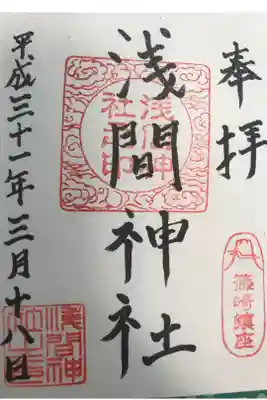 奉拝
篠崎鎮座
浅間神社
浅間神社之印
平成三十一年三月十八日
浅間神社之印